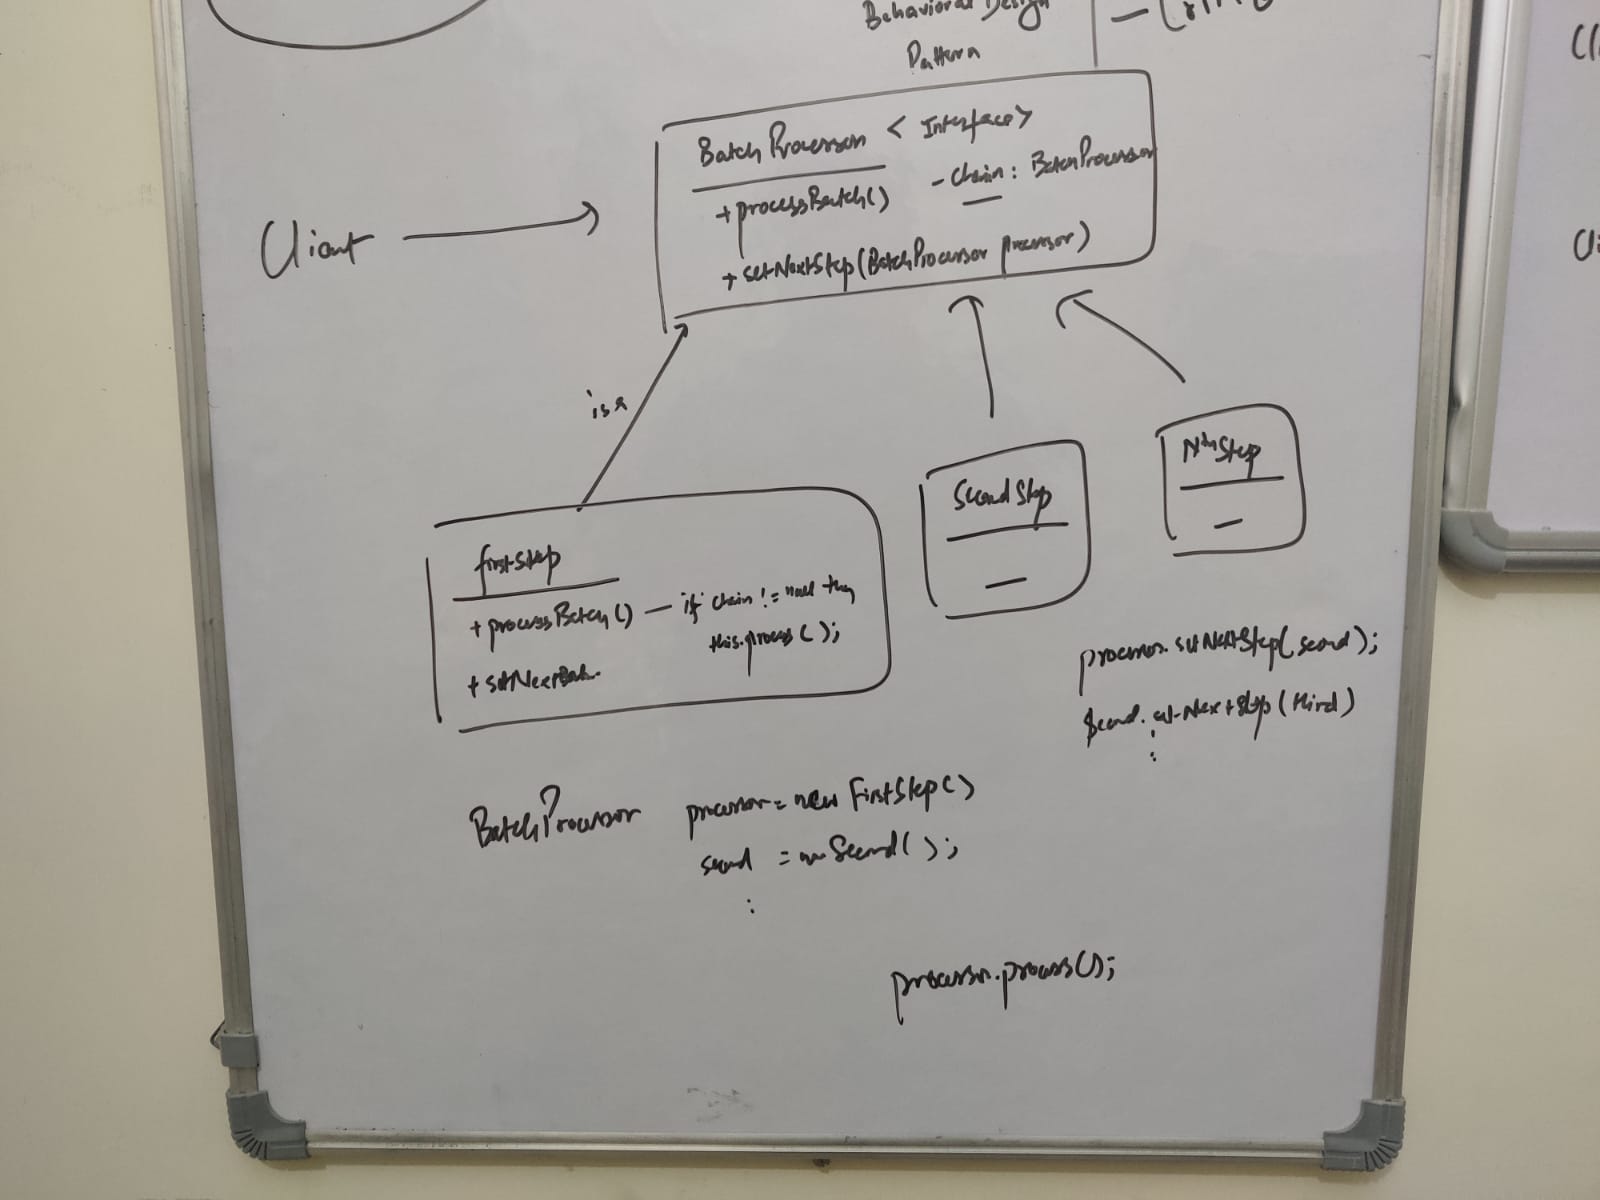 Behavioral Design
Pattern
BatchProcessor < Interface>
+ processBatch()
- chain: BatchProcessor
+ setNextStep(BatchProcessor processor)
Client
is a
firstStep
+ processBatch() — if chain != null then
this.process();
Second Step
Nth Step
processor.setNextStep(second);
Second.setNextStep(third)
:
BatchProcessor processor = new FirstStep()
second = new Second();
:
processor.process();